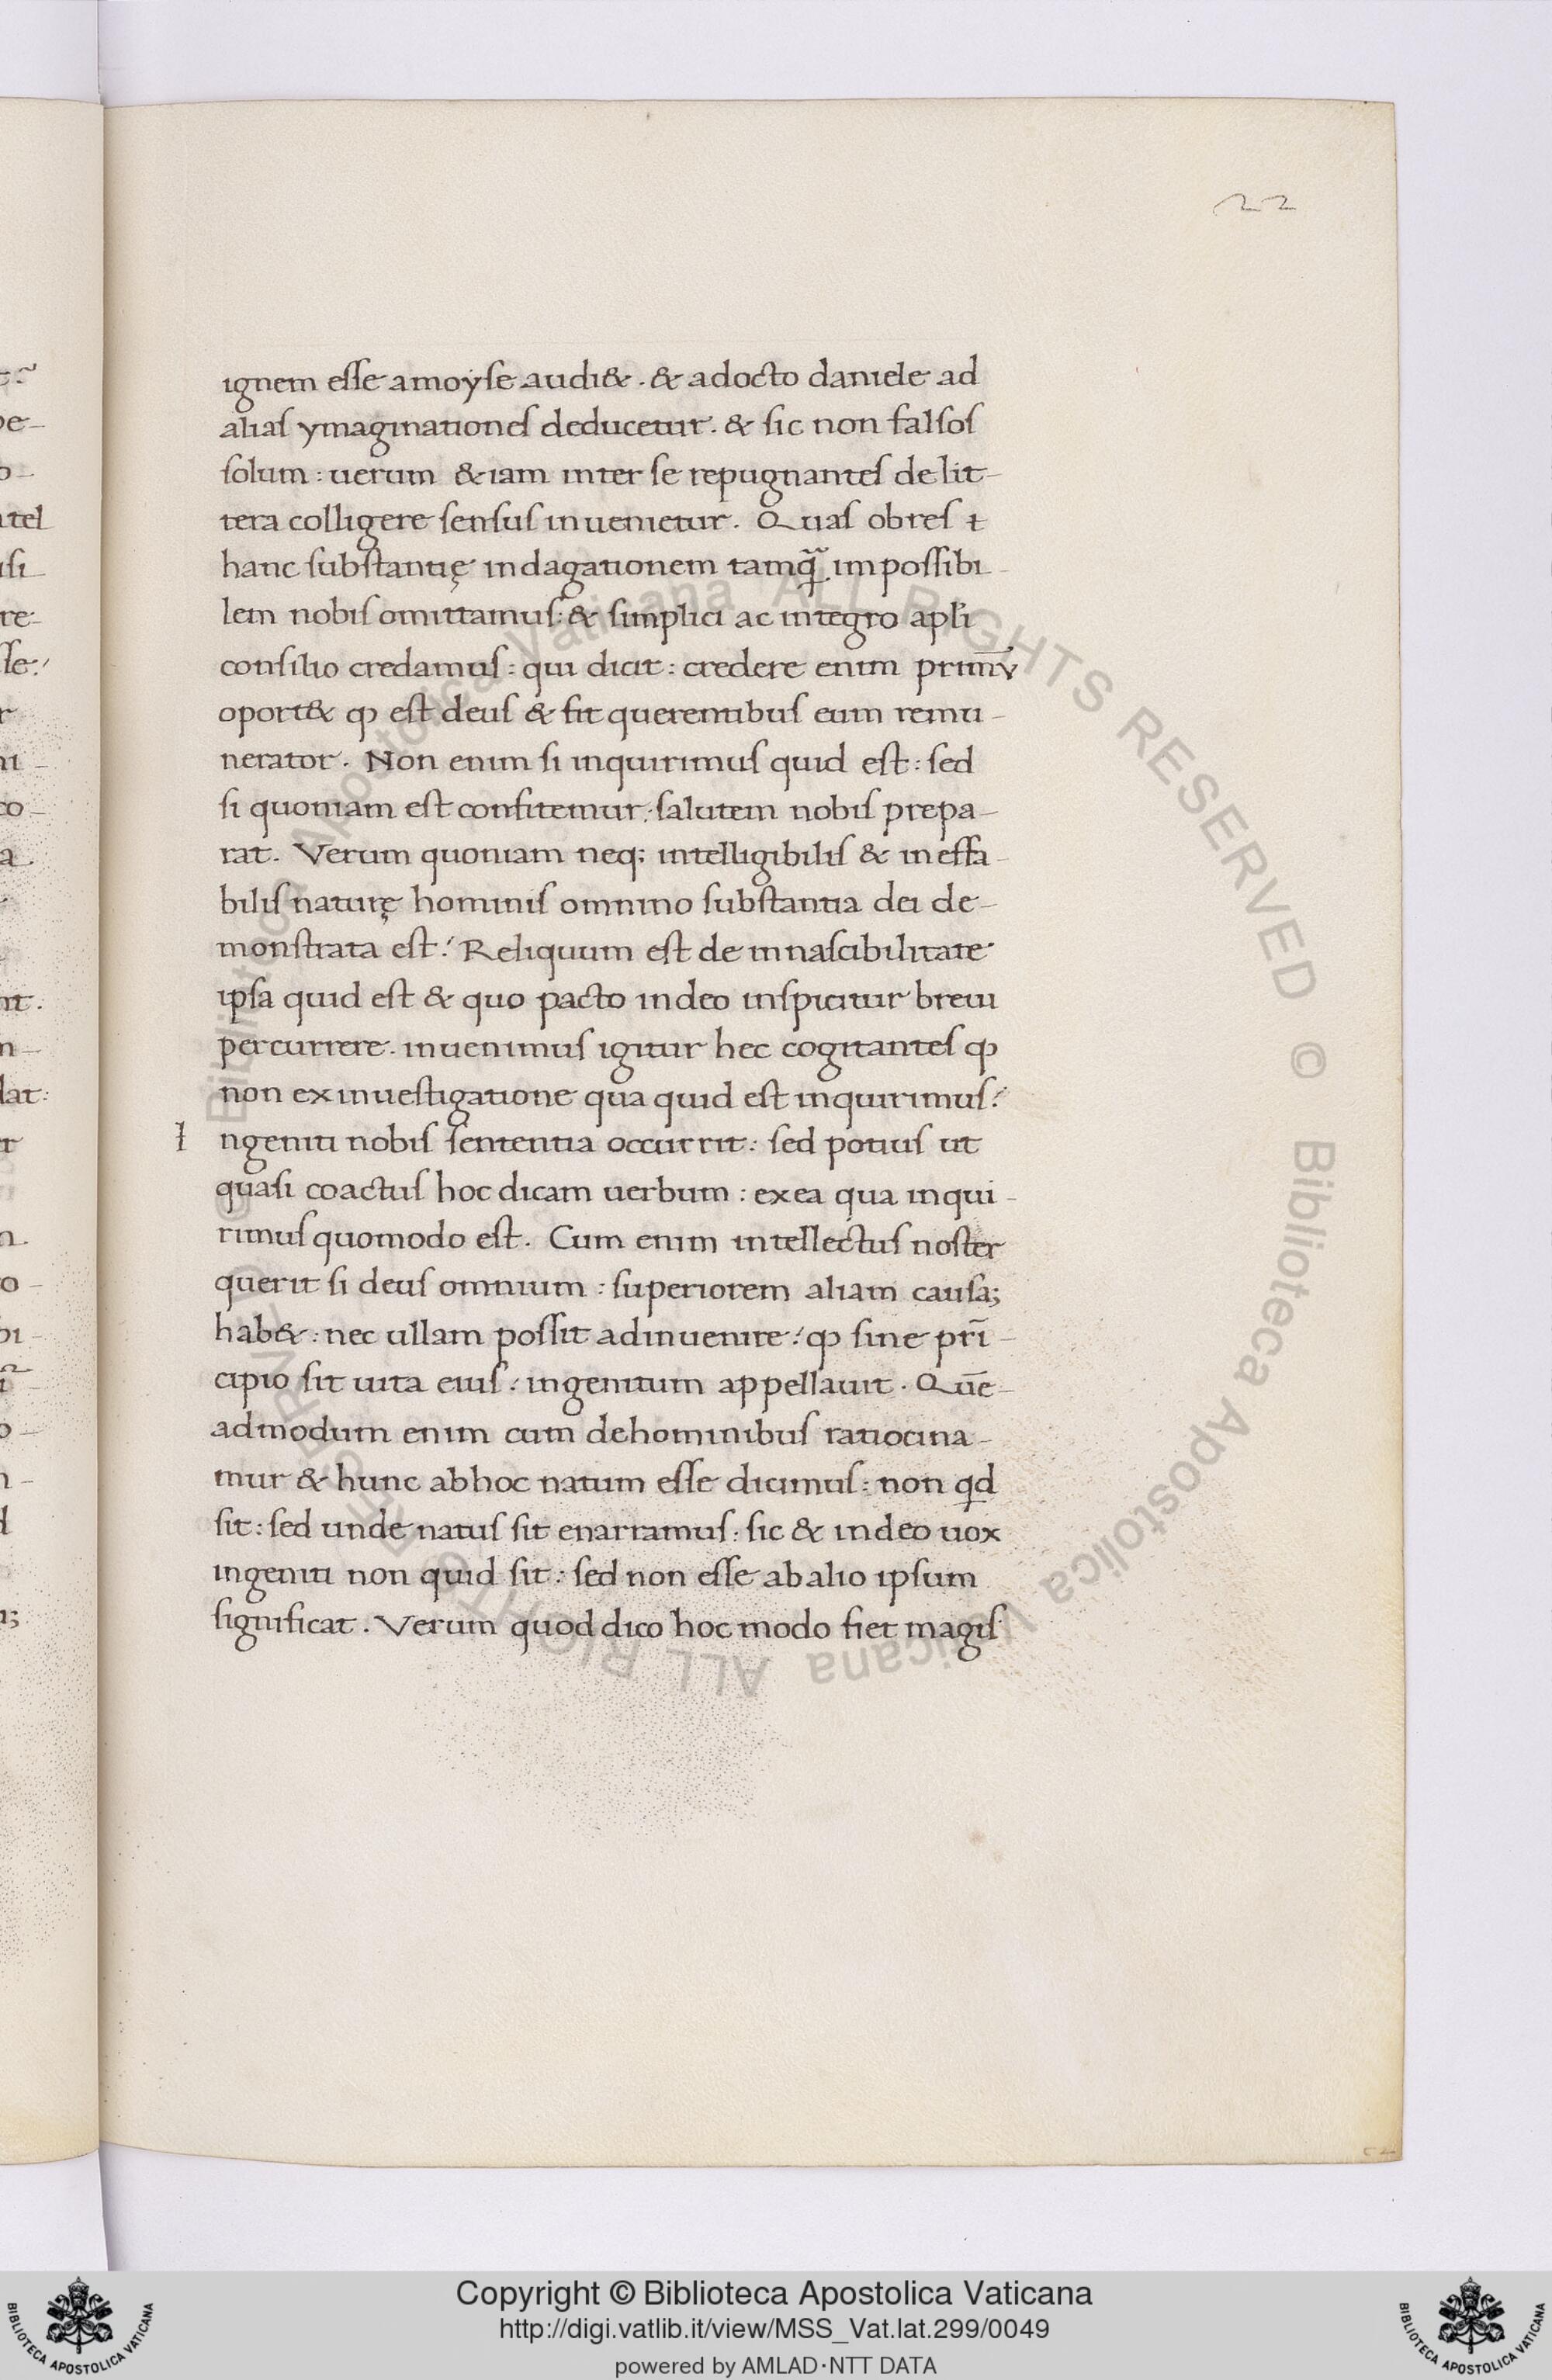 22
ignem esse amoyse audi&. & adocto daniele ad
alias ymaginationes deducetur. & sic non falsos
solum: uerum &iam inter se repugnantes de lit-
tera colligere sensus inuenietur. Quas obres &
hanc substantię indagationem tamq̃ impossibi-
lem nobis omittamus: & simplici ac integro apl̄i
consilio credamus: qui dicit: credere enim primū
oport& ꝙ est deus & fit querentibus eum remu-
nerator. Non enim si inquirimus quid est: sed
si quoniam est confitemur: salutem nobis prepa-
rat. Verum quoniam neq; intelligibilis & ineffa-
bilis naturę hominis omnino substantia dei de-
monstrata est: Reliquum est de innascibilitate
ipsa quid est & quo pacto indeo inspicitur breui
percurrere. inuenimus igitur hec cogitantes ꝙ
non exinuestigatione qua quid est inquirimus:
I ngeniti nobis sententia occurrit: sed potius ut
quasi coactus hoc dicam uerbum: exea qua inqui-
rimus quomodo est. Cum enim intellectus noster
querit si deus omnium: superiorem aliam causa;
hab&: nec ullam possit adinuenire: ꝙ sine pri̅-
cipio sit uita eius: ingenitum appellauit. Que̅-
admodum enim cum dehominibus ratiocina-
mur & hunc abhoc natum esse dicimus: non qd
sit: sed unde natus sit enarramus: sic & indeo uox
ingeniti non quid sit: sed non esse abalio ipsum
significat. Verum quod dico hoc modo fiet magis
Copyright © Biblioteca Apostolica Vaticana
http://digi.vatlib.it/view/MSS_Vat.lat.299/0049
powered by AMLAD·NTT DATA